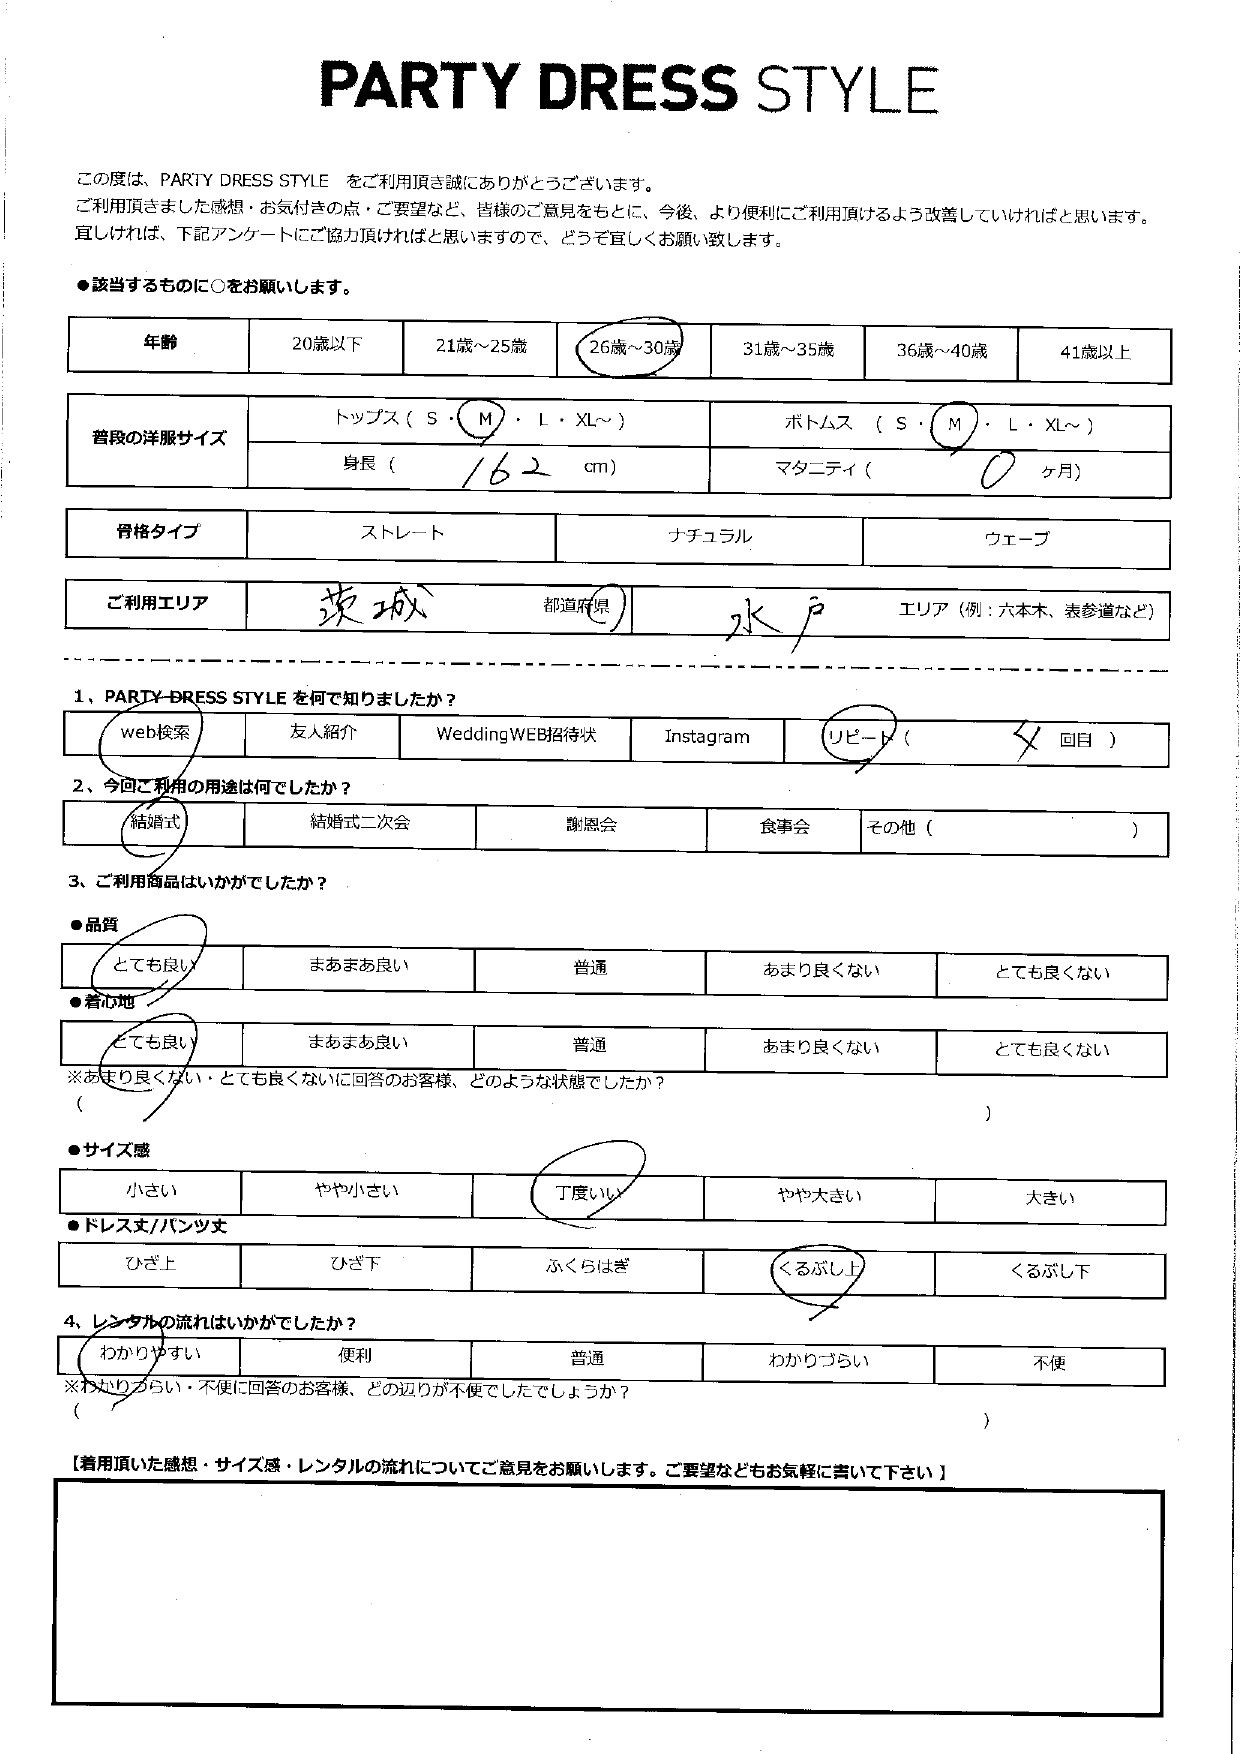 PARTY DRESS STYLE
この度は、PARTY DRESS STYLE をご利用頂き誠にありがとうございます。
ご利用頂きました感想・お気付きの点・ご要望など、皆様のご意見をもとに、今後、より便利にご利用頂けるよう改善していければと思います。
宜しければ、下記アンケートにご協力頂ければと思いますので、どうぞ宜しくお願い致します。
●該当するものに○をお願いします。
年齢 20歳以下 21歳～25歳 26歳～30歳 31歳～35歳 36歳～40歳 41歳以上
普段の洋服サイズ トップス ( S ・ M ・ L ・ XL～ ) ボトムス ( S ・ M ・ L ・ XL～ )
身長 ( 162 cm) マタニティ ( 0 ヶ月)
骨格タイプ ストレート ナチュラル ウェーブ
ご利用エリア 茨城 都道府県 水戸 エリア（例：六本木、表参道など）
1、PARTY DRESS STYLE を何で知りましたか？
web検索 友人紹介 WeddingWEB招待状 Instagram リピート ( 4 回目 )
2、今回ご利用の用途は何でしたか？
結婚式 結婚式二次会 謝恩会 食事会 その他 ( )
3、ご利用商品はいかがでしたか？
●品質
とても良い まあまあ良い 普通 あまり良くない とても良くない
●着心地
とても良い まあまあ良い 普通 あまり良くない とても良くない
※あまり良くない・とても良くないに回答のお客様、どのような状態でしたか？
( )
●サイズ感
小さい やや小さい 丁度いい やや大きい 大きい
●ドレス丈/パンツ丈
ひざ上 ひざ下 ふくらはぎ くるぶし上 くるぶし下
4、レンタルの流れはいかがでしたか？
わかりやすい 便利 普通 わかりづらい 不便
※わかりづらい・不便に回答のお客様、どの辺りが不便でしたでしょうか？
( )
【着用頂いた感想・サイズ感・レンタルの流れについてご意見をお願いします。ご要望などもお気軽に書いて下さい】